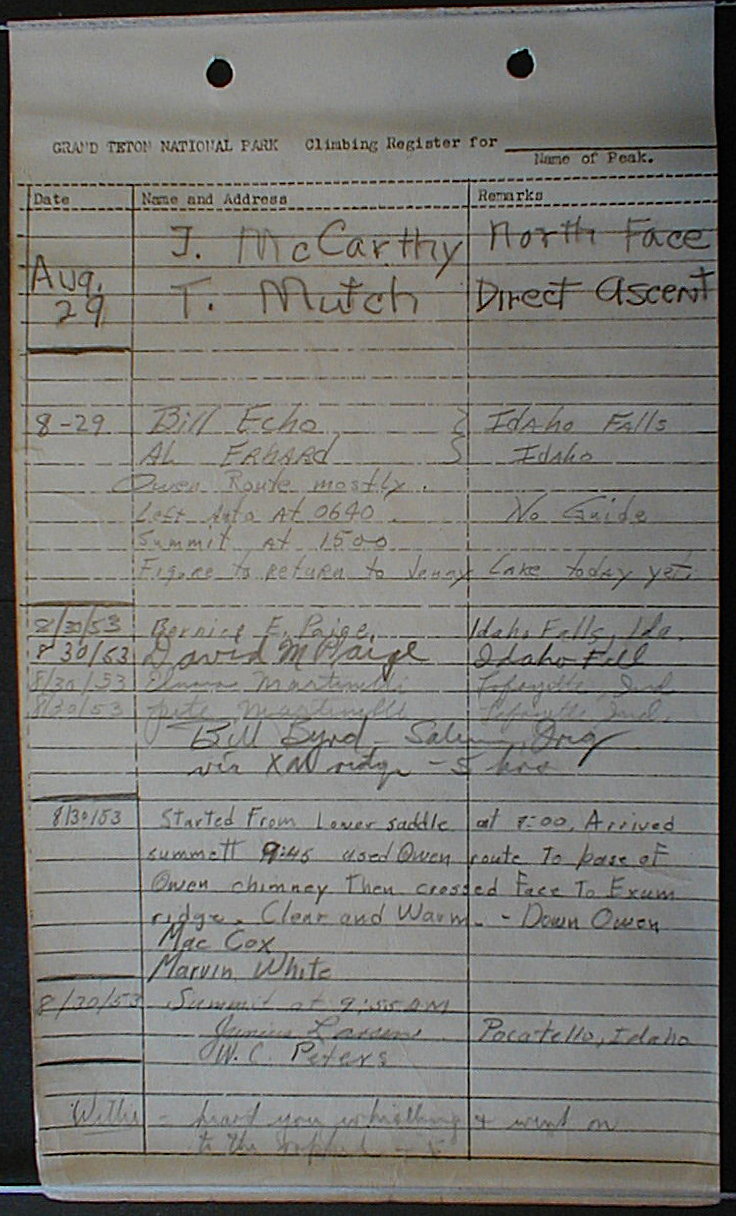 GRAND TETON NATIONAL PARK Climbing Register for
Name of Peak.
Date Name and Address Remarks
J. McCarthy North Face
Aug. 29 T. Mutch Direct Ascent
8-29 Bill Echo } Idaho Falls
Al Erhard } Idaho
Owen Route mostly.
Left Auto At 0640. No Guide
Summit At 1500
Figure to return to Jenny Lake today yet.
8/30/53 Bernice E. Paige, Idaho Falls, Ida.
8/30/53 David M Paige Idaho Fall
8/30/53 Martinelli Lafayette, Ind
8/30/53 Pete Martinelli Lafayette, Ind.
Bill Byrd - Salem, Oreg
via XM ridge - 5 hrs
8/30/53 Started From Lower saddle at 8:00. Arrived
summett 9:45 used Owen route To base of
Owen chimney Then crossed Face To Exum
ridge. Clear and Warm. - Down Owen
Mac Cox
Marvin White
8/30/53 Summit at 9:55 AM
Junius Larsen Pocatello, Idaho
W.C. Peters
Willi - heard you whistling & went on
to the rappel